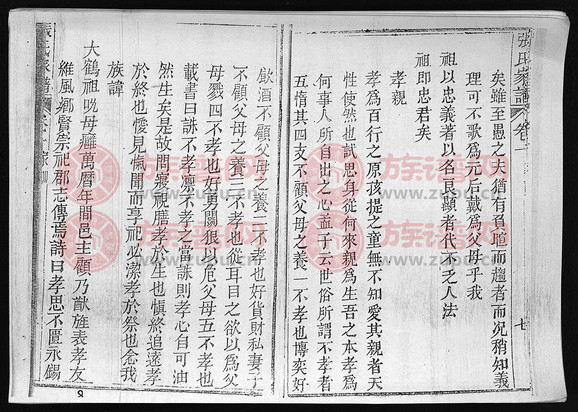 張氏家譜 卷一
七
矣雖至愚之夫猶有負暄而趨者而況稍知義
理可不歌為元后戴為父母乎我
祖以忠義著以名良顯者代不乏人法
祖即忠君矣
孝親
孝為百行之原孩提之童無不知愛其親者天
性使然也試思身從何來親為生吾之本孝為
何事人所自出之心孟子云世俗所謂不孝者
五惰其四支不顧父母之養一不孝也博奕好
飲酒不顧父母之養二不孝也好貨財私妻子
不顧父母之養三不孝也從耳目之欲以為父
母戮四不孝也好勇鬬狠以危父母五不孝也
載書曰誅不孝凛不孝之當誅則孝心自可油
然生矣是故問寢視膳孝於生也慎終追遠孝
於終也僾見愾聞而享祀必潔孝於祭也念我
族諱
大鶴祖
萬曆年間邑主顧乃猷旌表孝友
維風鄉賢崇祀郡志傳焉詩曰孝思不匱永錫